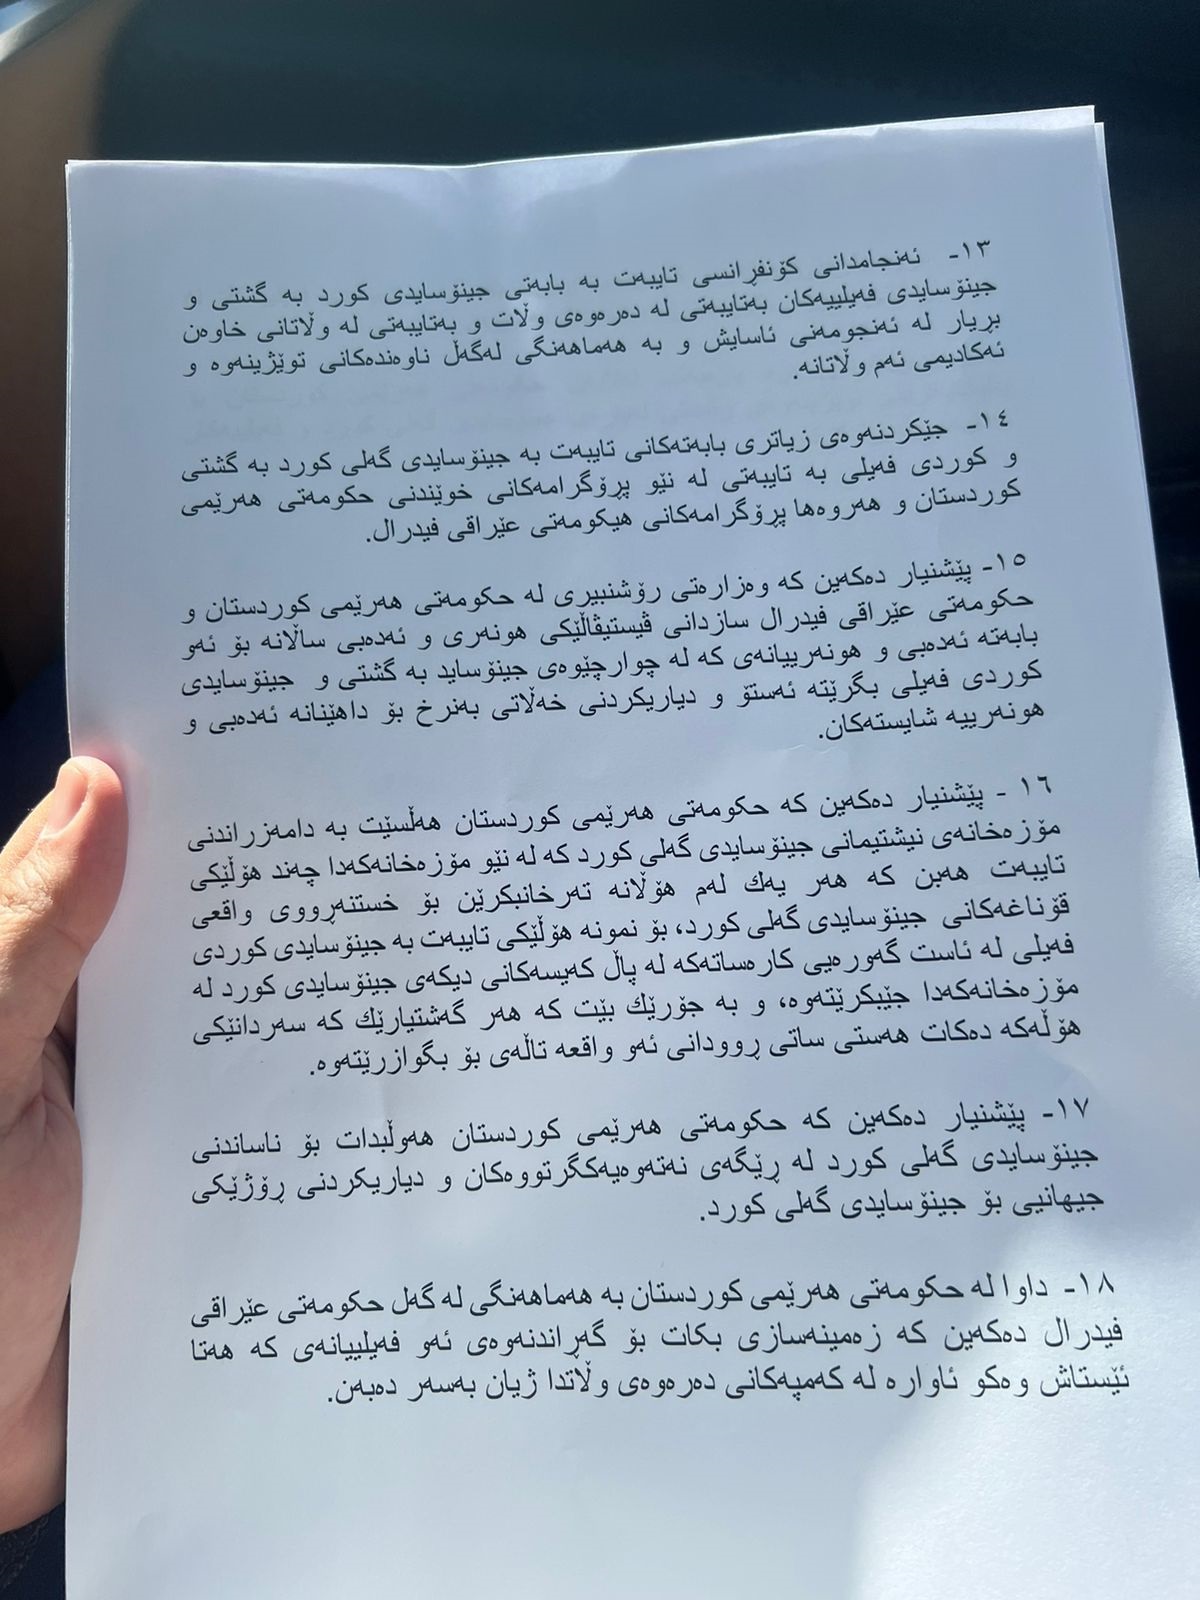 ١٣- ئەنجامدانی كۆنفڕانسی تایبەت بە بابەتی جینۆسایدی كورد بە گشتی و
جینۆسایدی فەیلییەكان بەتایبەتی لە دەرەوەی وڵات و بەتایبەتی لە وڵاتانی خاوەن
بڕیار لە ئەنجومەنی ئاسایش و بە هەماهەنگی لەگەڵ ناوەندەكانی توێژینەوە و
ئەكادیمی ئەم وڵاتانە.
١٤- جێكردنەوەی زیاتری بابەتەكانی تایبەت بە جینۆسایدی گەلی كورد بە گشتی
و كوردی فەیلی بە تایبەتی لە نێو پڕۆگرامەكانی خوێندنی حكومەتی هەرێمی
كوردستان و هەروەها پڕۆگرامەكانی هیكومەتی عێراقی فیدرال.
١٥- پێشنیار دەكەین كە وەزارەتی رۆشنبیری لە حكومەتی هەرێمی كوردستان و
حكومەتی عێراقی فیدرال سازدانی ڤیستیڤاڵێكی هونەری و ئەدەبی ساڵانە بۆ ئەو
بابەتە ئەدەبی و هونەرییانەی كە لە چوارچێوەی جینۆساید بە گشتی و جینۆسایدی
كوردی فەیلی بگرێتە ئەستۆ و دیاریكردنی خەڵاتی بەنرخ بۆ داهێنانە ئەدەبی و
هونەرییە شایستەكان.
١٦ - پێشنیار دەكەین كە حكومەتی هەرێمی كوردستان هەڵسێت بە دامەزراندنی
مۆزەخانەی نیشتیمانی جینۆسایدی گەلی كورد كە لە نێو مۆزەخانەكەدا چەند هۆڵێكی
تایبەت هەبن كە هەر یەك لەم هۆڵانە تەرخانبكرێن بۆ خستنەڕووی واقعی
قۆناغەكانی جینۆسایدی گەلی كورد، بۆ نمونە هۆڵێكی تایبەت بە جینۆسایدی كوردی
فەیلی لە ئاست گەورەیی كارەساتەكە لە پاڵ كەیسەكانی دیكەی جینۆسایدی كورد لە
مۆزەخانەكەدا جێبكرێتەوە، و بە جۆرێك بێت كە هەر گەشتیارێك كە سەردانێكی
هۆڵەكە دەكات هەستی ساتی ڕوودانی ئەو واقعە تاڵەی بۆ بگوازرێتەوە.
١٧- پێشنیار دەكەین كە حكومەتی هەرێمی كوردستان هەوڵبدات بۆ ناساندنی
جینۆسایدی گەلی كورد لە ڕێگەی نەتەوەیەكگرتووەكان و دیاریكردنی ڕۆژێكی
جیهانیی بۆ جینۆسایدی گەلی كورد.
١٨- داوا لە حكومەتی هەرێمی كوردستان بە هەماهەنگی لە گەل حكومەتی عێراقی
فیدرال دەكەین كە زەمینەسازی بكات بۆ گەڕاندنەوەی ئەو فەیلییانەی كە هەتا
ئێستاش وەكو ئاوارە لە كەمپەكانی دەرەوەی وڵاتدا ژیان بەسەر دەبەن.